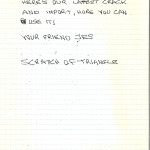 HERE'S OUR LATEST CRACK
AND IMPORT, HOPE YOU CAN
USE IT!
YOUR FRIEND JES
SCRATCH OF TRIANGLE